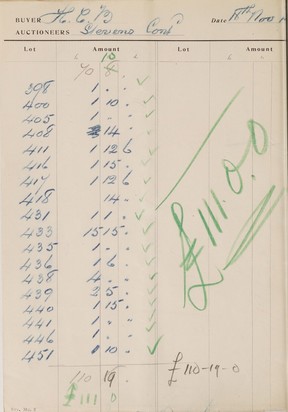 BUYER H. C. B Date 18th Nov 1
AUCTIONEERS Stevens Cont
Lot Amount Lot Amount
£ 10 £
70 8 .
398 1 . .
400 1 10 .
405 1 . .
408 14 .
411 1 12 6
416 1 15 .
417 1 12 6
418 14 .
431 1 11 .
433 15 15 .
435 1 . .
436 1 6 .
438 4 . .
439 2 5 .
440 1 15 .
441 1 . .
446 1 . .
451 1 10 .
110 19
£ 111 0
£ 110-19-0
£111.0.0